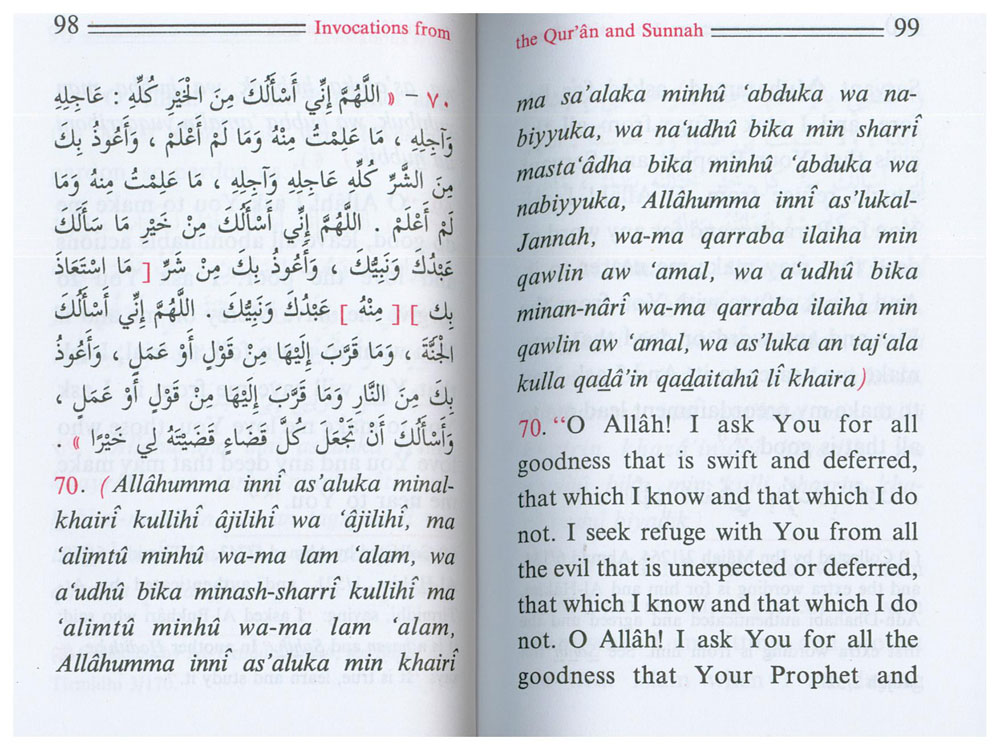 98 Invocations from
٧٠. « اللَّهُمَّ إِنِّي أَسْأَلُكَ مِنَ الْخَيْرِ كُلِّهِ : عَاجِلِهِ
وَآجِلِهِ ، مَا عَلِمْتُ مِنْهُ وَمَا لَمْ أَعْلَمْ ، وَأَعُوذُ بِكَ
مِنَ الشَّرِّ كُلِّهِ عَاجِلِهِ وَآجِلِهِ ، مَا عَلِمْتُ مِنْهُ وَمَا
لَمْ أَعْلَمْ . اللَّهُمَّ إِنِّي أَسْأَلُكَ مِنْ خَيْرِ مَا سَأَلَكَ
عَبْدُكَ وَنَبِيُّكَ ، وَأَعُوذُ بِكَ مِنْ شَرِّ [ مَا اسْتَعَاذَ
بِكَ ] [ مِنْهُ ] عَبْدُكَ وَنَبِيُّكَ . اللَّهُمَّ إِنِّي أَسْأَلُكَ
الْجَنَّةَ ، وَمَا قَرَّبَ إِلَيْهَا مِنْ قَوْلٍ أَوْ عَمَلٍ ، وَأَعُوذُ
بِكَ مِنَ النَّارِ وَمَا قَرَّبَ إِلَيْهَا مِنْ قَوْلٍ أَوْ عَمَلٍ ،
وَأَسْأَلُكَ أَنْ تَجْعَلَ كُلَّ قَضَاءٍ قَضَيْتَهُ لِي خَيْرًا » .
70. (Allâhumma innî as’aluka minal-
khairî kullihî âjilihî wa ‘âjilihî, ma
‘alimtû minhû wa-ma lam ‘alam, wa
a‘udhû bika minash-sharrî kullihî ma
‘alimtû minhû wa-ma lam ‘alam,
Allâhumma innî as’aluka min khairî
the Qur’ân and Sunnah 99
ma sa’alaka minhû ‘abduka wa na-
biyyuka, wa na‘udhû bika min sharrî
masta‘âdha bika minhû ‘abduka wa
nabiyyuka, Allâhumma innî as’lukal-
Jannah, wa-ma qarraba ilaiha min
qawlin aw ‘amal, wa a‘udhû bika
minan-nârî wa-ma qarraba ilaiha min
qawlin aw ‘amal, wa as’luka an taj‘ala
kulla qaḏâ’in qaḏaitahû lî khaira)
70. “O Allâh! I ask You for all
goodness that is swift and deferred,
that which I know and that which I do
not. I seek refuge with You from all
the evil that is unexpected or deferred,
that which I know and that which I do
not. O Allâh! I ask You for all the
goodness that Your Prophet and